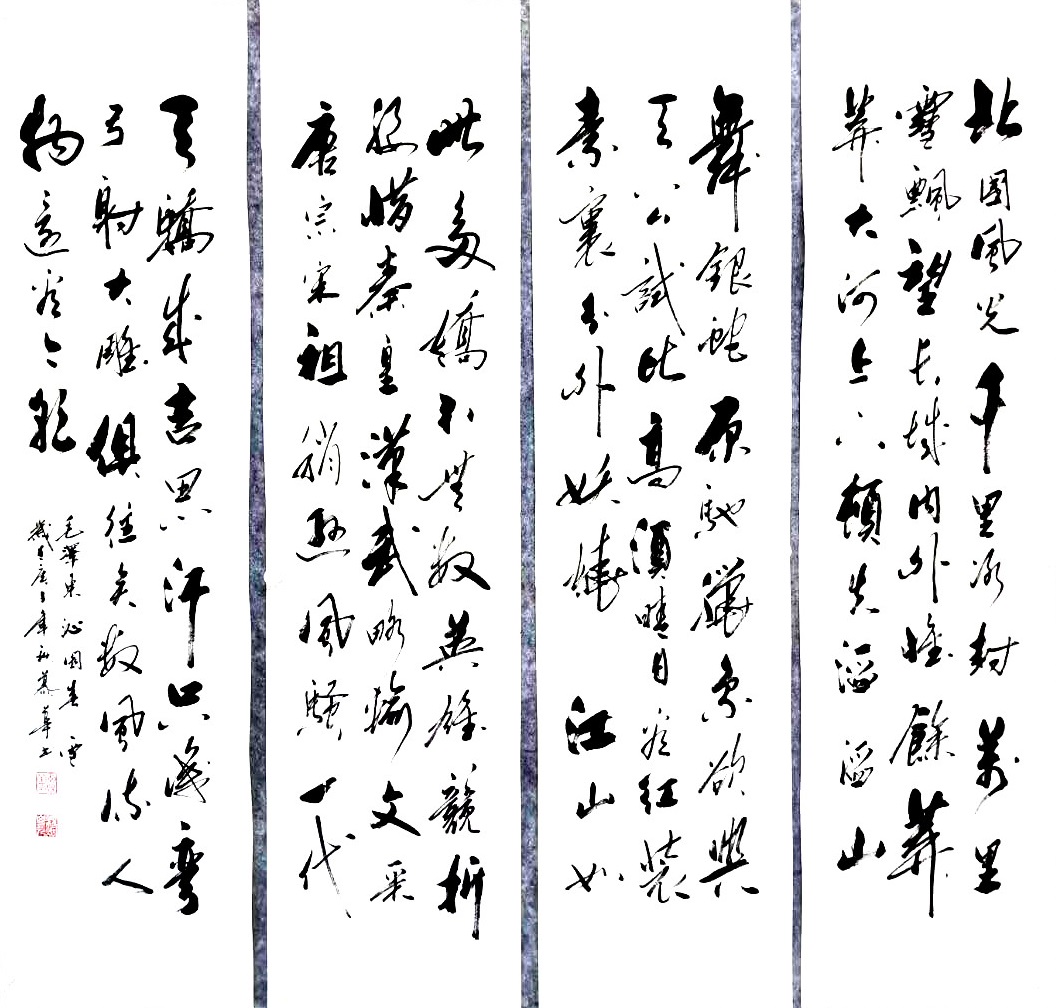 北國風光千里冰封萬里
雪飄望長城內外惟餘莽
莽大河上下頓失滔滔山
舞銀蛇原馳蠟象欲與
天公試比高須晴日看紅裝
素裹分外妖嬈江山如
此多嬌引無數英雄競折
腰惜秦皇漢武略輸文采
唐宗宋祖稍遜風騷一代
天驕成吉思汗只識彎
弓射大雕俱往矣數風流人
物還看今朝
毛澤東沁園春雪
歲